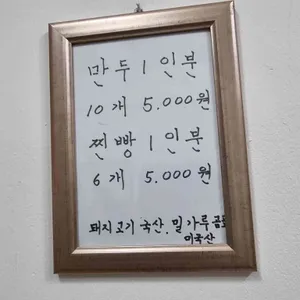 만두 1 인분
10 개 5.000 원
찐빵 1 인분
6 개 5.000 원
돼지고기 국산. 밀가루
미국산